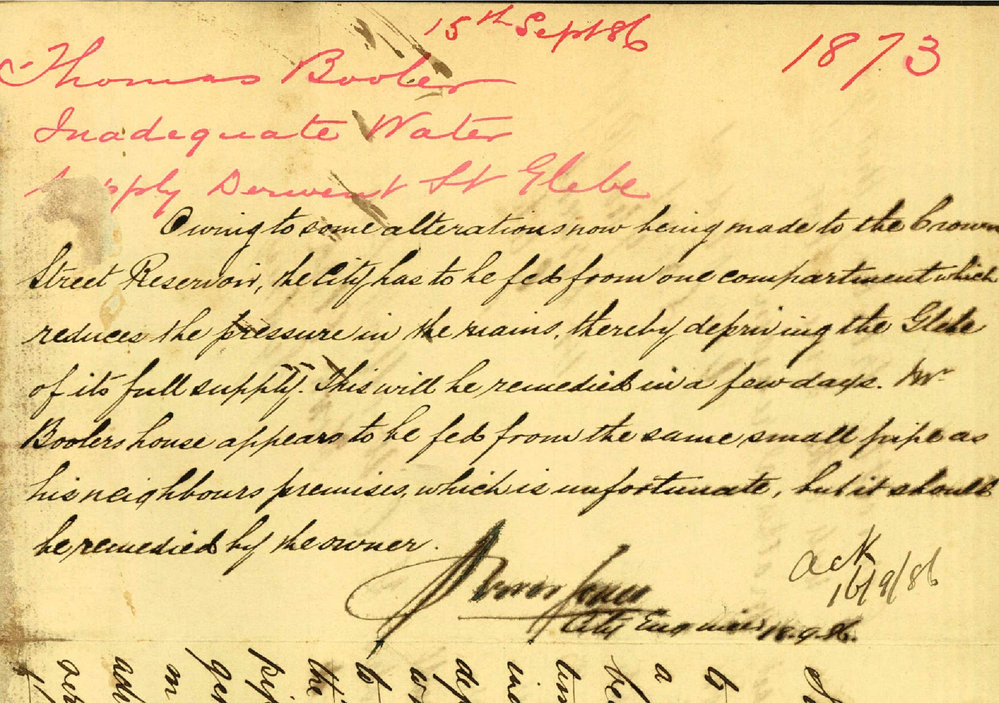 15th Sept 86
1873
Thomas Booler
Inadequate Water
Supply Derwent St Glebe
Owing to some alterations now being made to the Crown
Street Reservoir, the City has to be fed from one compartment which
reduces the pressure in the mains, thereby depriving the Glebe
of its full supply. This will be remedied in a few days. Mr
Boolers house appears to be fed from the same small pipe as
his neighbours premises, which is unfortunate, but it should
be remedied by the owner.
ack
16/9/86
City Engineer